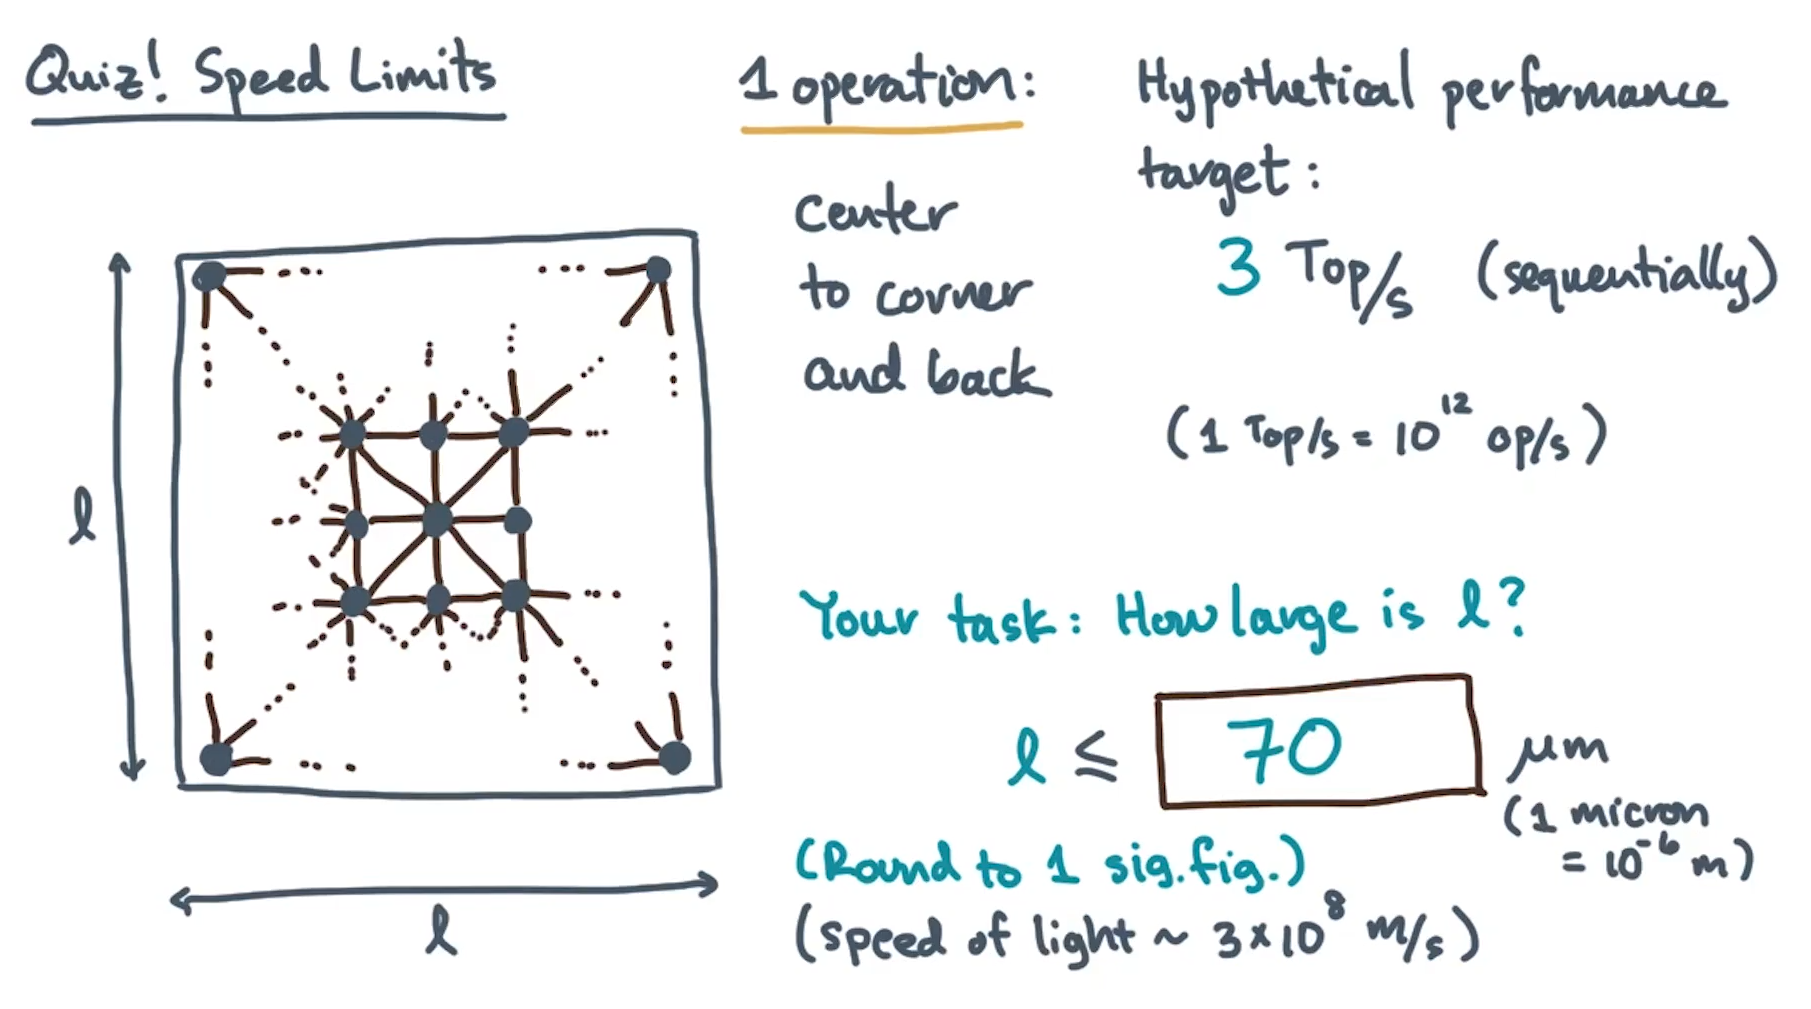 Quiz! Speed Limits
1 operation:
center
to corner
and back
Hypothetical performance
target:
3 Top/s (sequentially)
(1 Top/s = 10^12 op/s)
l
l
Your task: How large is l?
l ≤ 70 μm
(1 micron
= 10^-6 m)
(Round to 1 sig.fig.)
(speed of light ~ 3×10^8 m/s)